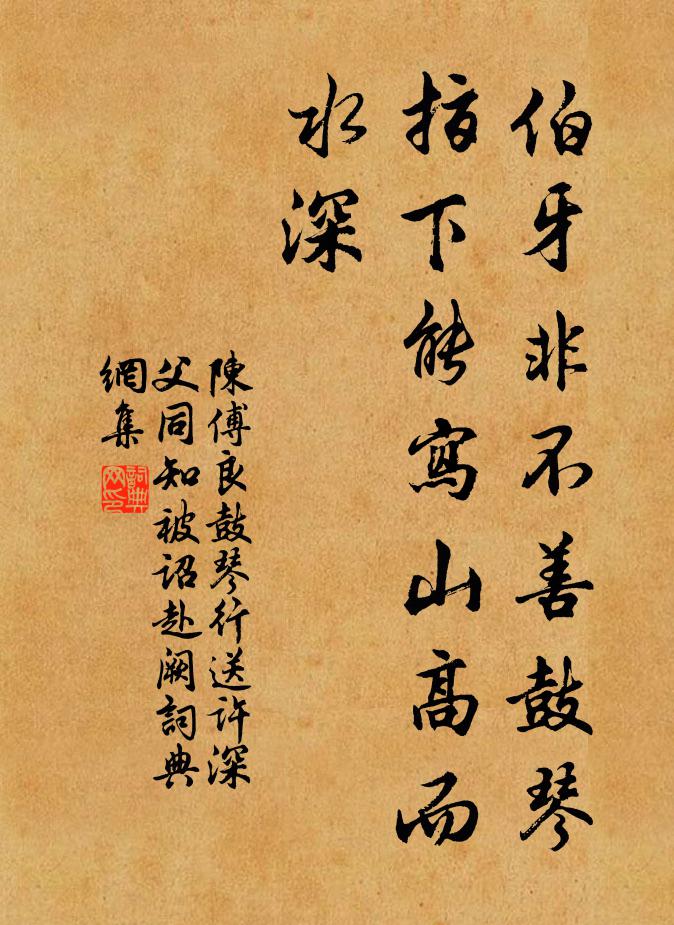 伯牙非不善鼓琴
指下能寫山高而
水深
陳傅良鼓琴行送許深
父同知被詔赴闕詞典
網集
詞典
网印